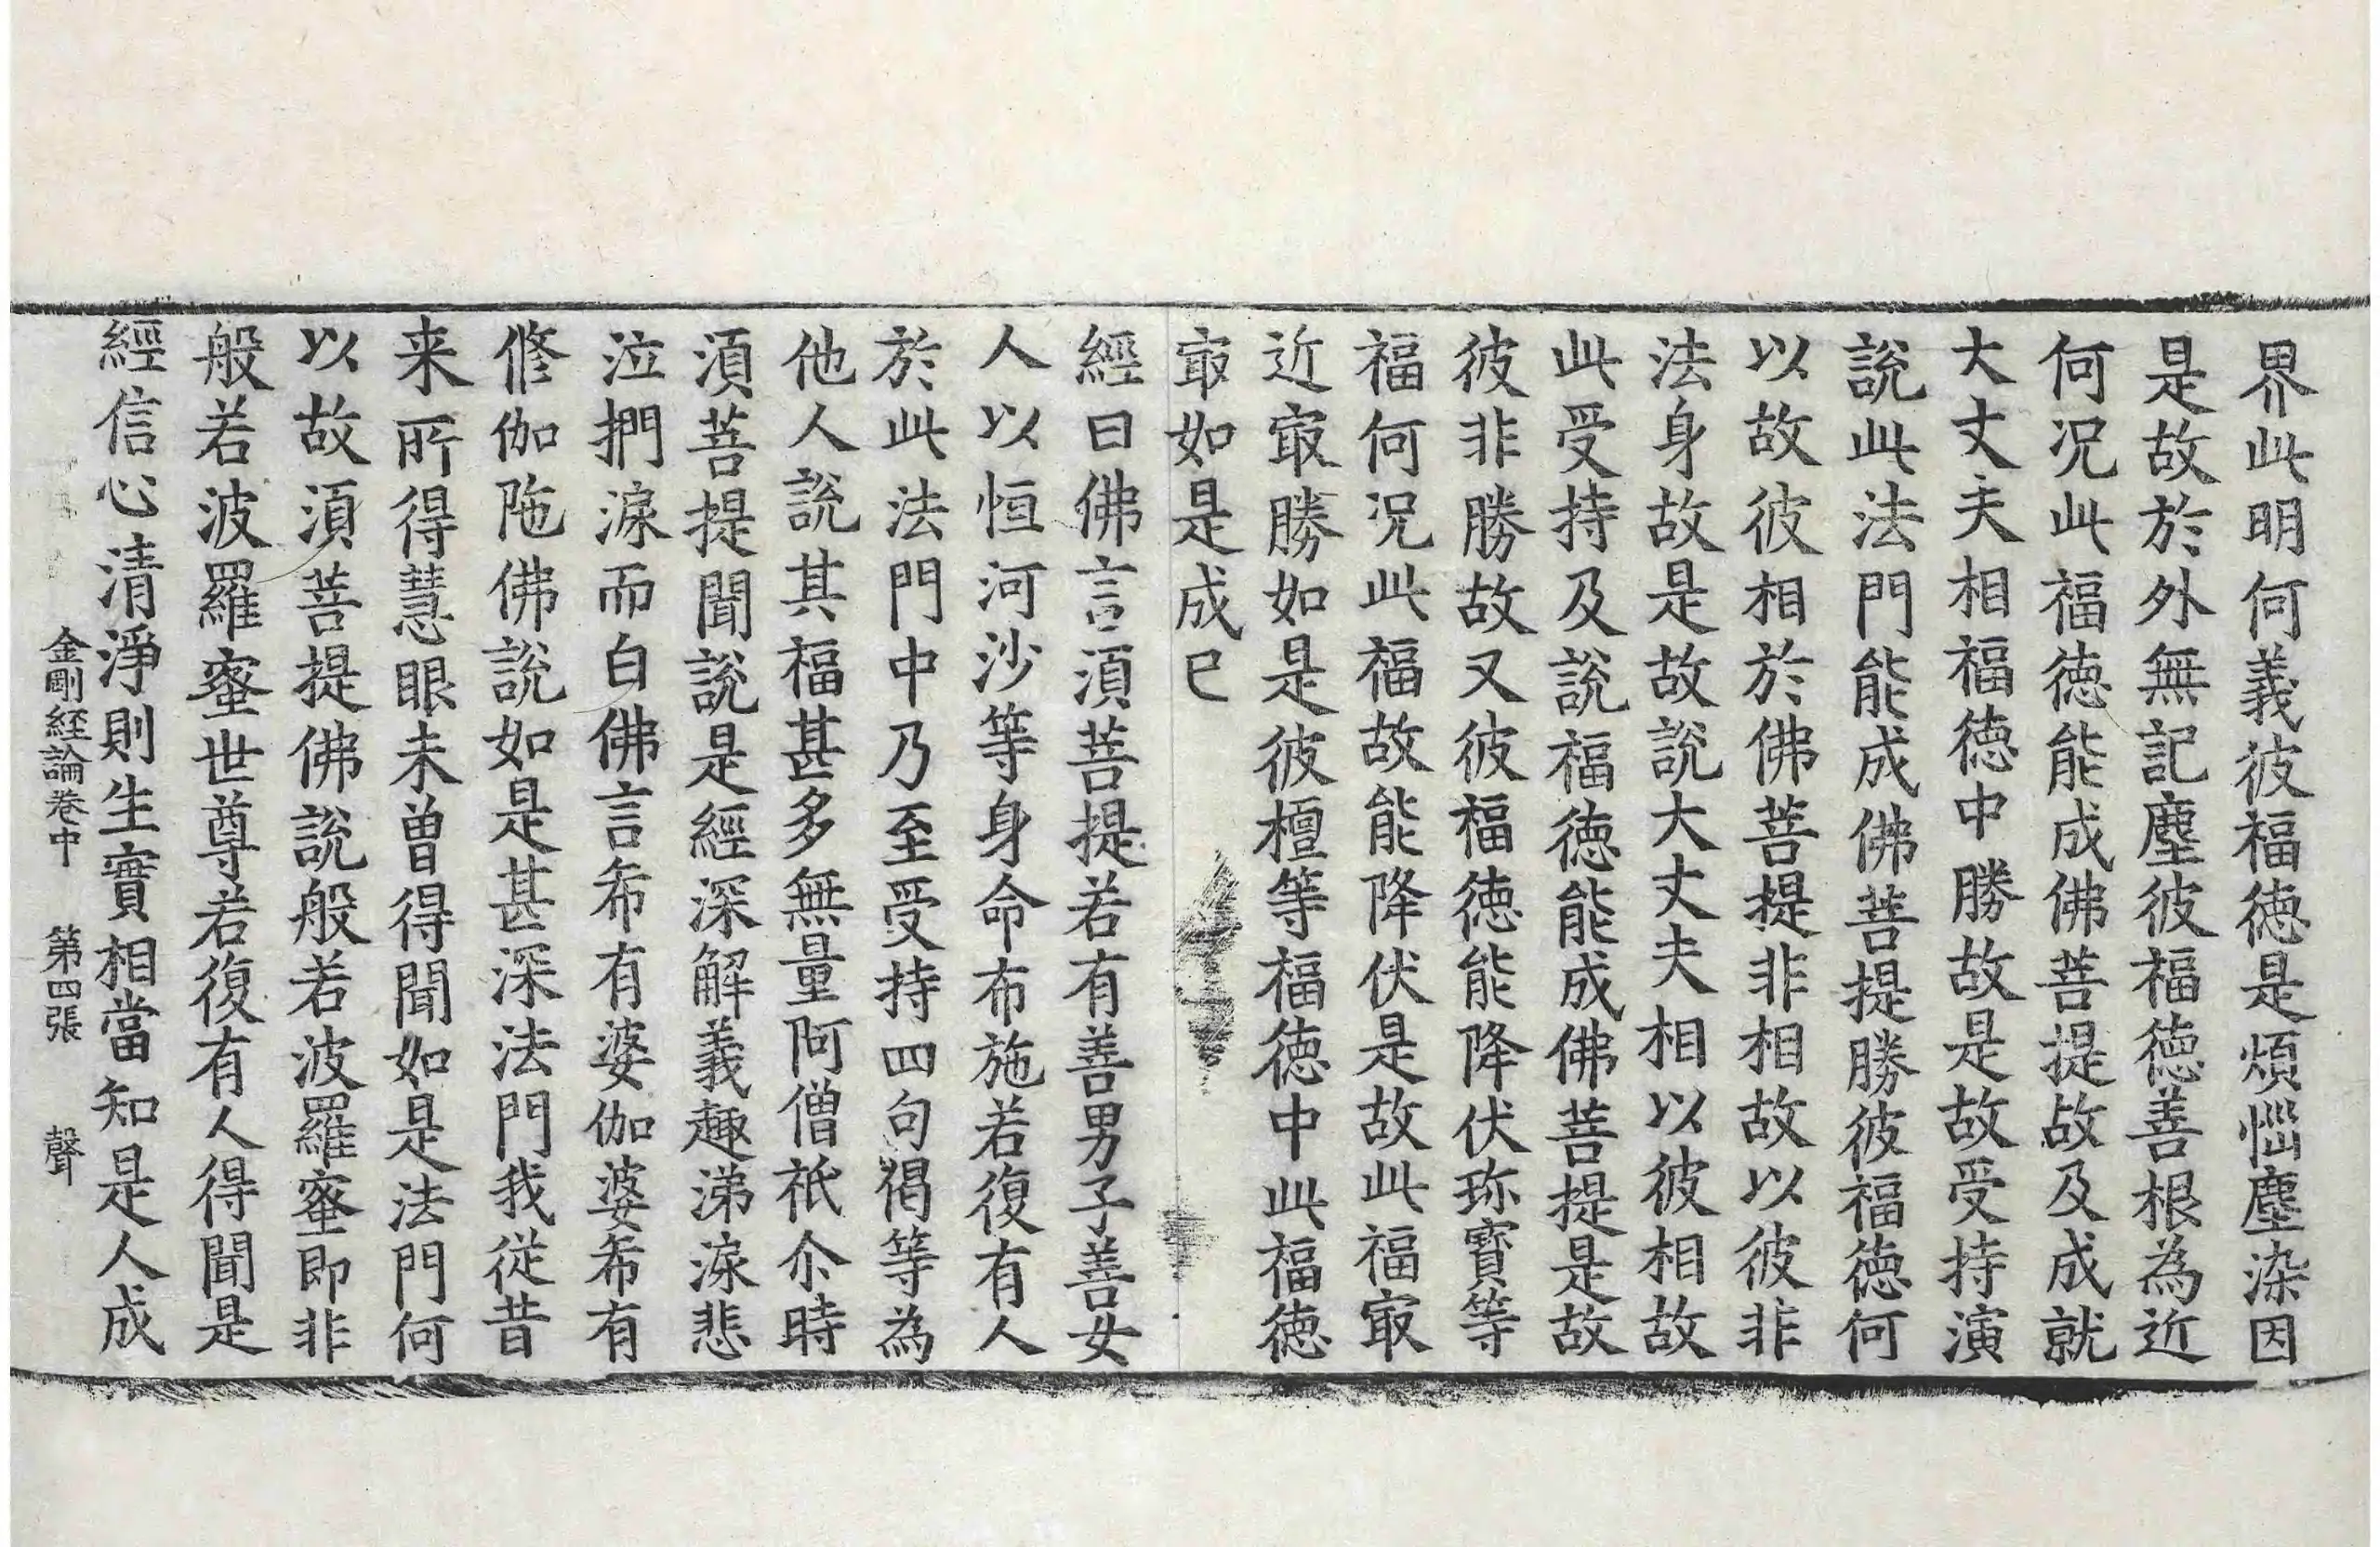 界此明何義彼福徳是煩惱塵染因
是故於外無記塵彼福徳善根為近
何况此福徳能成佛菩提故及成就
大丈夫相福徳中勝故是故受持演
說此法門能成佛菩提勝彼福徳何
以故彼相於佛菩提非相故以彼非
法身故是故說大丈夫相以彼相故
此受持及說福徳能成佛菩提是故
彼非勝故又彼福徳能降伏珎寳等
福何况此福故能降伏是故此福㝡
近㝡勝如是彼檀等福徳中此福徳
㝡如是成已
經曰佛言須菩提若有善男子善女
人以恒河沙等身命布施若復有人
於此法門中乃至受持四句偈等為
他人說其福甚多無量阿僧祇尒時
須菩提聞說是經深解義趣涕淚悲
泣捫淚而白佛言希有婆伽婆希有
修伽陁佛說如是甚深法門我從昔
来所得慧眼未曽得聞如是法門何
以故須菩提佛說般若波羅蜜即非
般若波羅蜜世尊若復有人得聞是
經信心清淨則生實相當知是人成
金剛経論卷中 第四張 聲